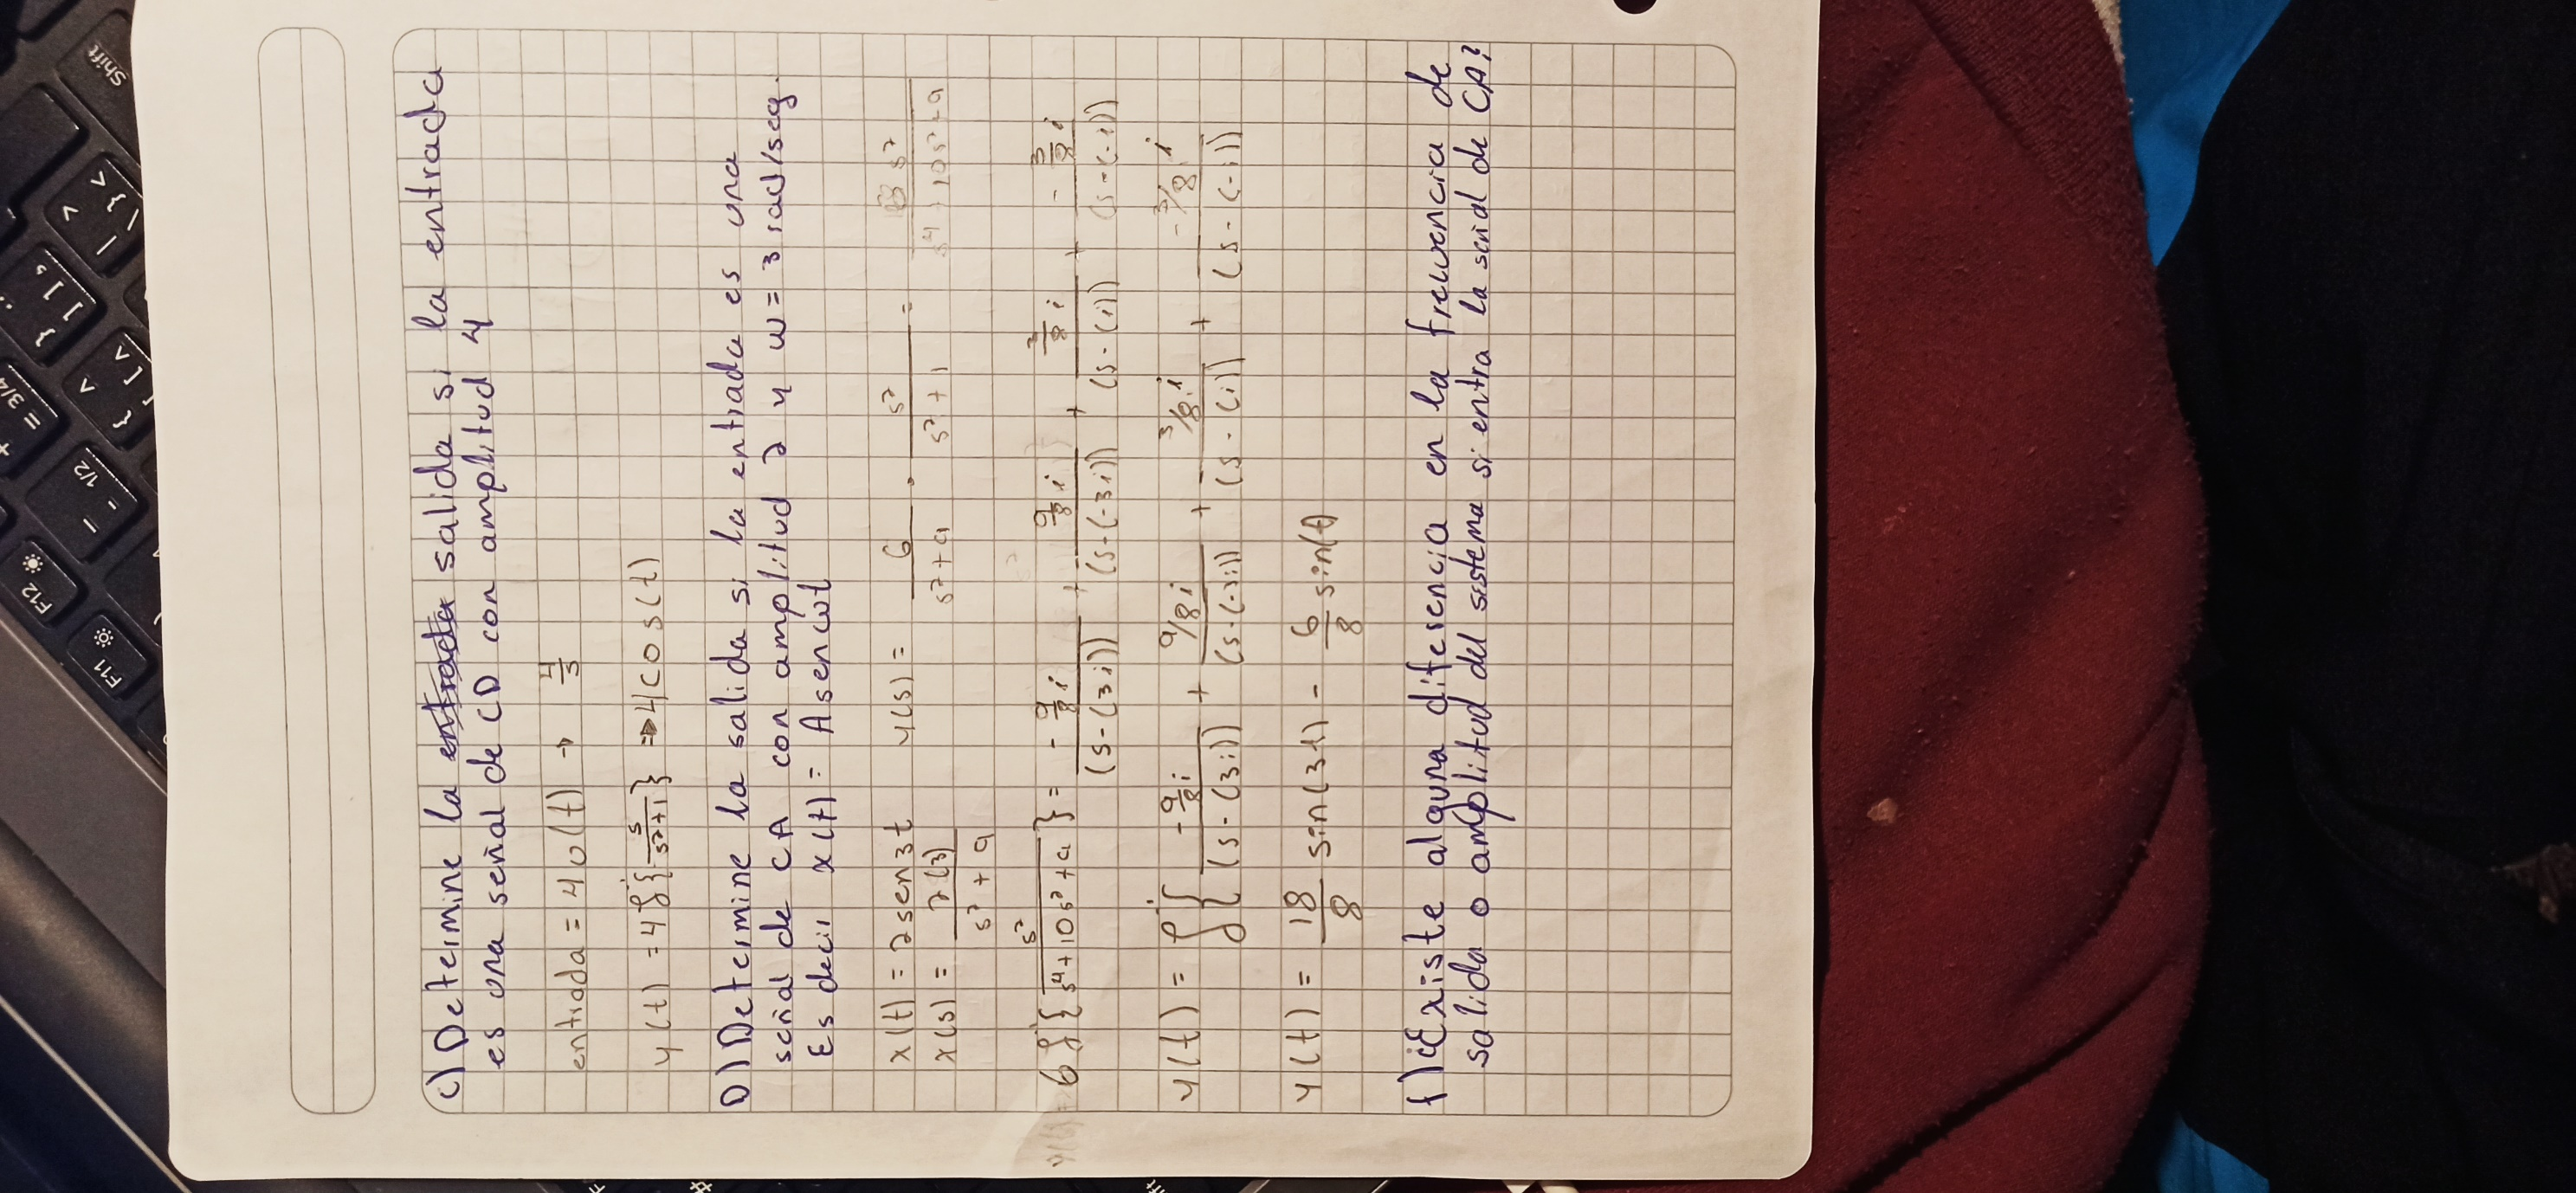 C) Determine la entrada salida si la entrada
es una señal de CD con amplitud 4
entrada = 4u(t) → 4/s
y(t) = 4 ℒ⁻¹{s/(s²+1)} ⇒ 4cos(t)
D) Determine la salida si la entrada es una
señal de CA con amplitud 2 y w = 3 rad/seg.
Es decir x(t) = A sen wt
x(t) = 2 sen 3t y(s) = 6/(s²+9) · s²/(s²+1) =
x(s) = 2(3)/(s²+9)
6 ℒ⁻¹{s²/(s⁴+10s²+9)} = -9/8 i/(s-(3i)) + 9/8 i/(s-(-3i)) + 3/8 i/(s-(i)) + -3/8 i/(s-(-i))
y(t) = ℒ⁻¹{-9/8 i/(s-(3i)) + 9/8 i/(s-(-3i)) + 3/8 i/(s-(i)) + -3/8 i/(s-(-i))
y(t) = 18/8 sin(3t) - 6/8 sin(t)
f) ¿Existe alguna diferencia en la frecuencia de
salida o amplitud del sistema si entra la señal de CA?
F11
F12
- - 1/2
+ = 3/4
{ [ ^
} ] ,
| <
\ } >
Shift